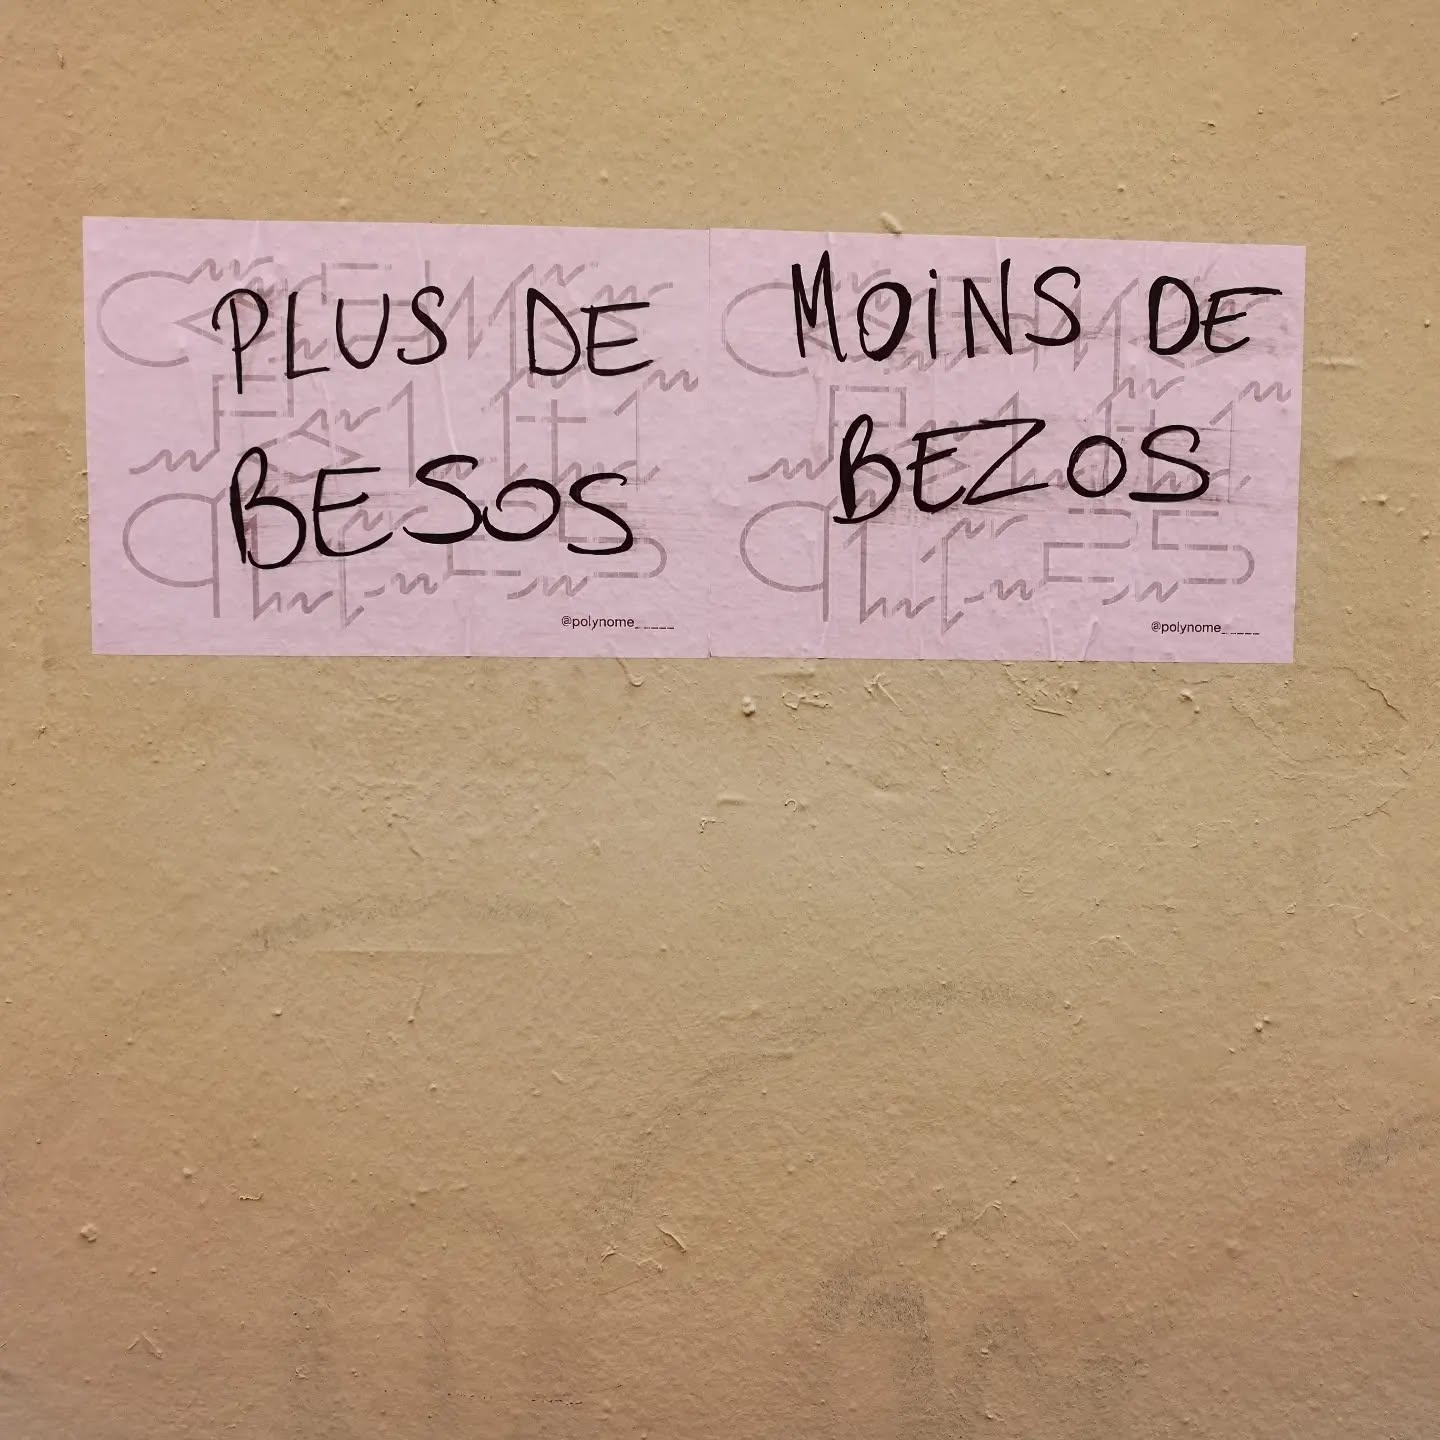 PLUS DE
BESOS
@polynome_____
MOINS DE
BEZOS
@polynome_____